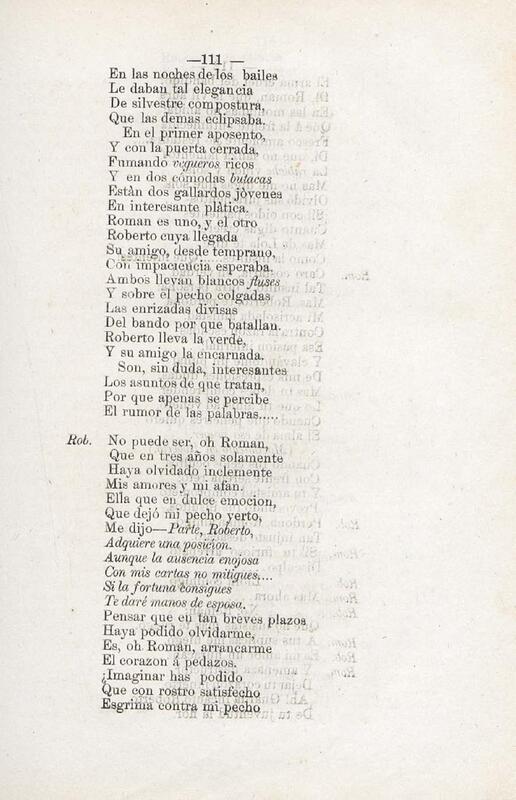 —111 —
En las noches de los bailes
Le daban tal elegancia
De silvestre compostura,
Que las demas eclipsaba.
En el primer aposento,
Y con la puerta cerrada,
Fumando vegueros ricos
Y en dos cómodas butacas
Estàn dos gallardos jòvenes
En interesante plàtica.
Roman es uno, y el otro
Roberto cuya llegada
Su amigo, desde temprano,
Con impaciencia esperaba.
Ambos llevan blancos fluses
Y sobre el pecho colgadas
Las enrizadas divisas
Del bando por que batallan.
Roberto lleva la verde,
Y su amigo la encarnada.
Son, sin duda, interesantes
Los asuntos de que tratan,
Por que apenas se percibe
El rumor de las palabras.....
Rob. No puede ser, oh Roman,
Que en tres años solamente
Haya olvidado inclemente
Mis amores y mi afan.
Ella que en dulce emocion,
Que dejó mi pecho yerto,
Me dijo—Parte, Roberto,
Adquiere una posicion.
Aunque la ausencia enojosa
Con mis cartas no mitigues....
Si la fortuna consigues
Te daré manos de esposa.
Pensar que en tan breves plazos
Haya podido olvidarme,
Es, oh Roman, arrancarme
El corazon á pedazos.
¿Imaginar has podido
Que con rostro satisfecho
Esgrima contra mi pecho